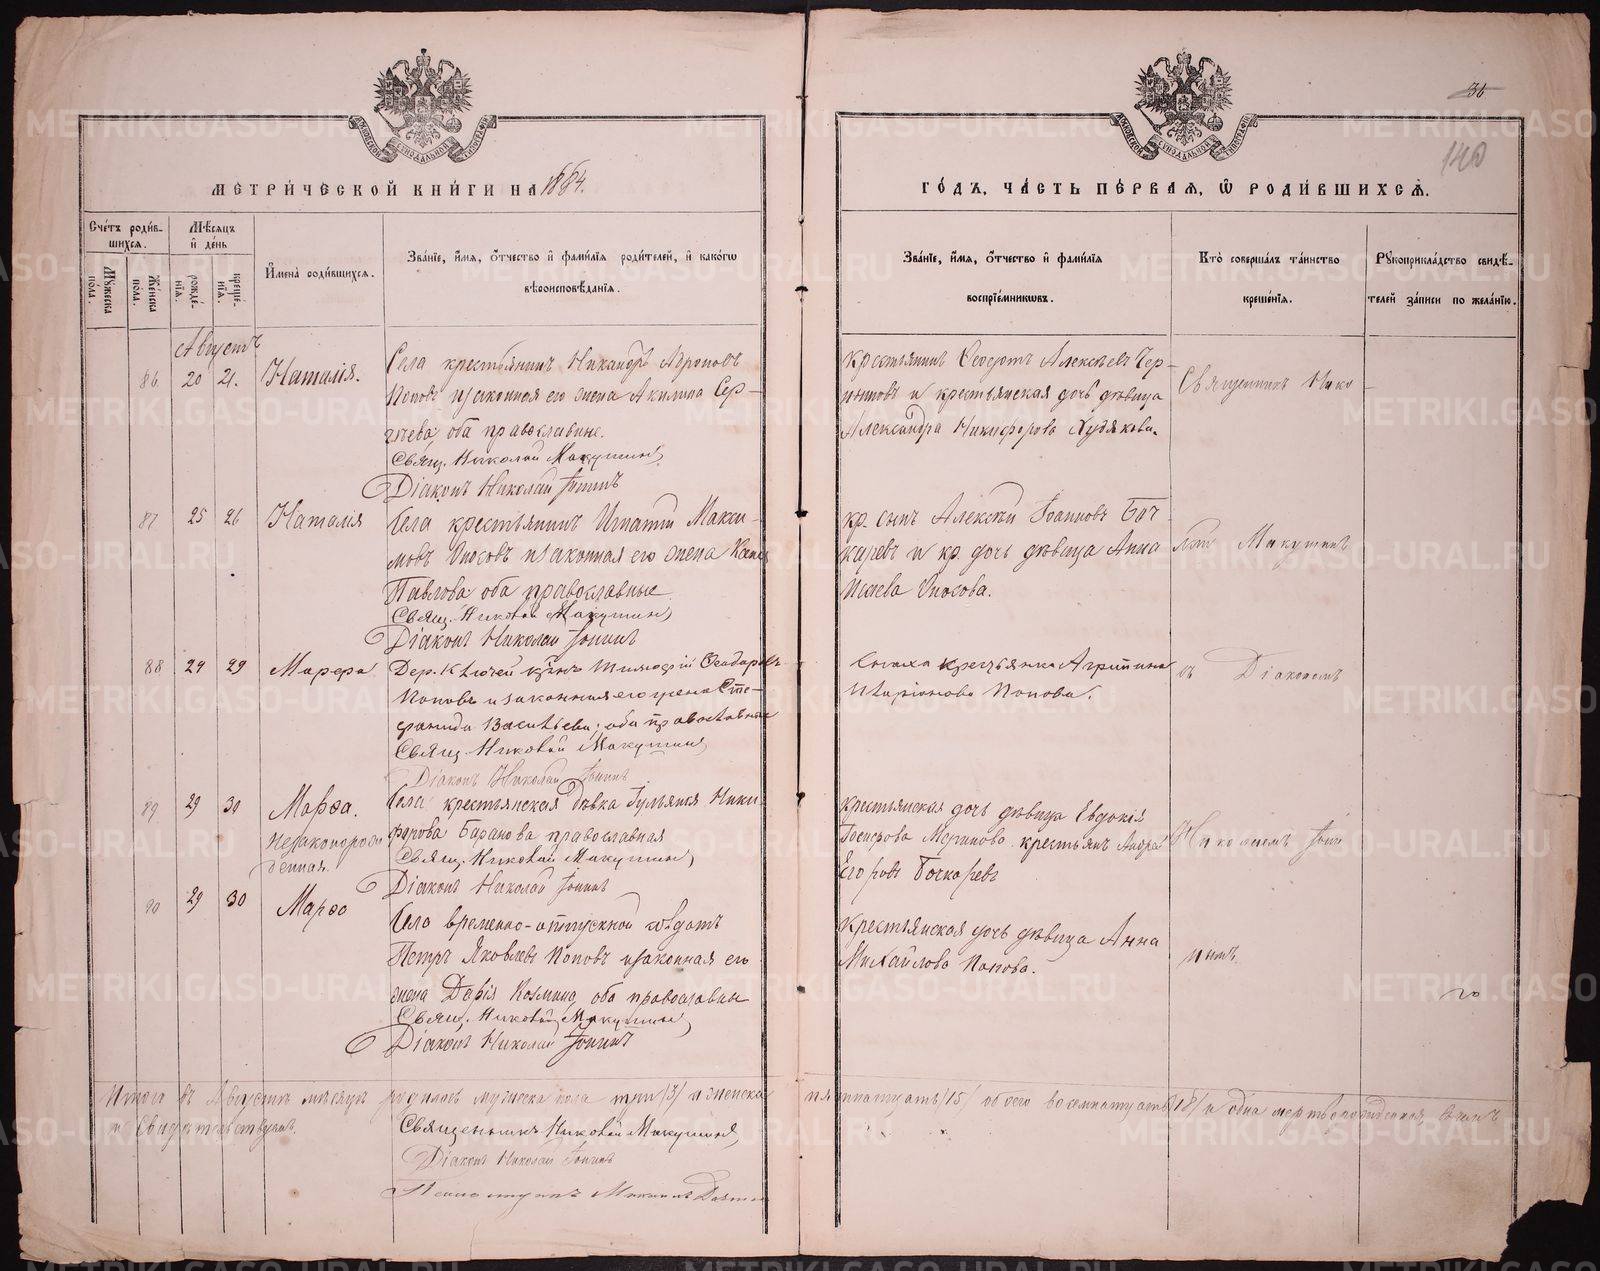 36
140
МЕТРИ́ЧЕСКОЙ КНИ́ГИ НА 1884.
ГО́ДЪ, ЧА́СТЬ ПЕ́РВАЯ, Ѽ РОДИ́ВШИХСѦ.
Сче́тъ роди́в-
шихся.
Мꙋжеска по́ла.
Же́нска по́ла.
Мѣ́сяцъ
и҆ де́нь
рожде́-
нїя.
креще́-
нїя.
И҆мена̀ роди́вшихся.
Зва́нїе, и҆́мя, ѻ҆́тчество и҆ фами́лїя роди́телей, и҆ како́гѡ
вѣроисповѣ́данїя.
Зва́нїе, и҆́мя, ѻ҆́тчество и҆ фами́лїя
воспрїе́мникѡвъ.
Кто̀ соверша́лъ та́инство
креще́нїя.
Рꙋкоприкла́дство свидѣ́-
телей за́писи по жела́нїю.
Августъ
86. 20 21. Наталія.
Села крестьянинъ Никандръ
Поповъ и законная его жена Акилина Сер-
гѣева оба православные.
Свящ. Николай Макушинъ
Діаконъ Николай Іонинъ
крестьянинъ Ѳеодотъ Алексѣевъ Чер-
и крестьянская дочь дѣвица
Александра Никифорова Худякова.
Священникъ Нико
87 25 26 Наталія
Села крестьянинъ Игнатій Макси-
мовъ и законная его жена
Павлова оба православные
Свящ. Николай Макушинъ
Діаконъ Николай Іонинъ
кр. сынъ Алексѣй Іоанновъ Боч-
каревъ и кр. дочь дѣвица Анна
Исаева
лай Макушинъ
88 24 29 Марфа
Дер. Ключей кр-нъ Тимоѳей Ѳеодоровъ
Поповъ и законная его жена Сте-
фанида Васильева, оба православные
Свящ. Николай Макушинъ
Діаконъ Николай Іонинъ
крестьянка Агрипина
Иларіонова Попова.
съ Діакономъ
89 29 30 Марѳа.
Незаконорож
денная.
Села крестьянская дѣвка Іульянія Ники-
форова Баранова православная
Свящ. Николай Макушинъ
Діаконъ Николай Іонинъ
крестьянская дочь дѣвица Евдокія
крестьян.
Егоровъ Бочкаревъ
Николаемъ Іони
90 29 30 Марѳа
Села временно-отпускной солдатъ
Петръ Яковлевъ Поповъ и законная его
жена Дарія Козмина, оба православные
Свящ. Николай Макушинъ
Діаконъ Николай Іонинъ
Крестьянская дочь дѣвица Анна
Михайлова Попова.
нымъ.
Итого въ Августѣ мѣсяцѣ родилось мужеска пола три /3/ и женска пятнатцать /15/ обоего восемнатцать /18/ и одна мертворожденная,
Священникъ Николай Макушинъ
Діаконъ Николай Іонинъ
Псаломщикъ